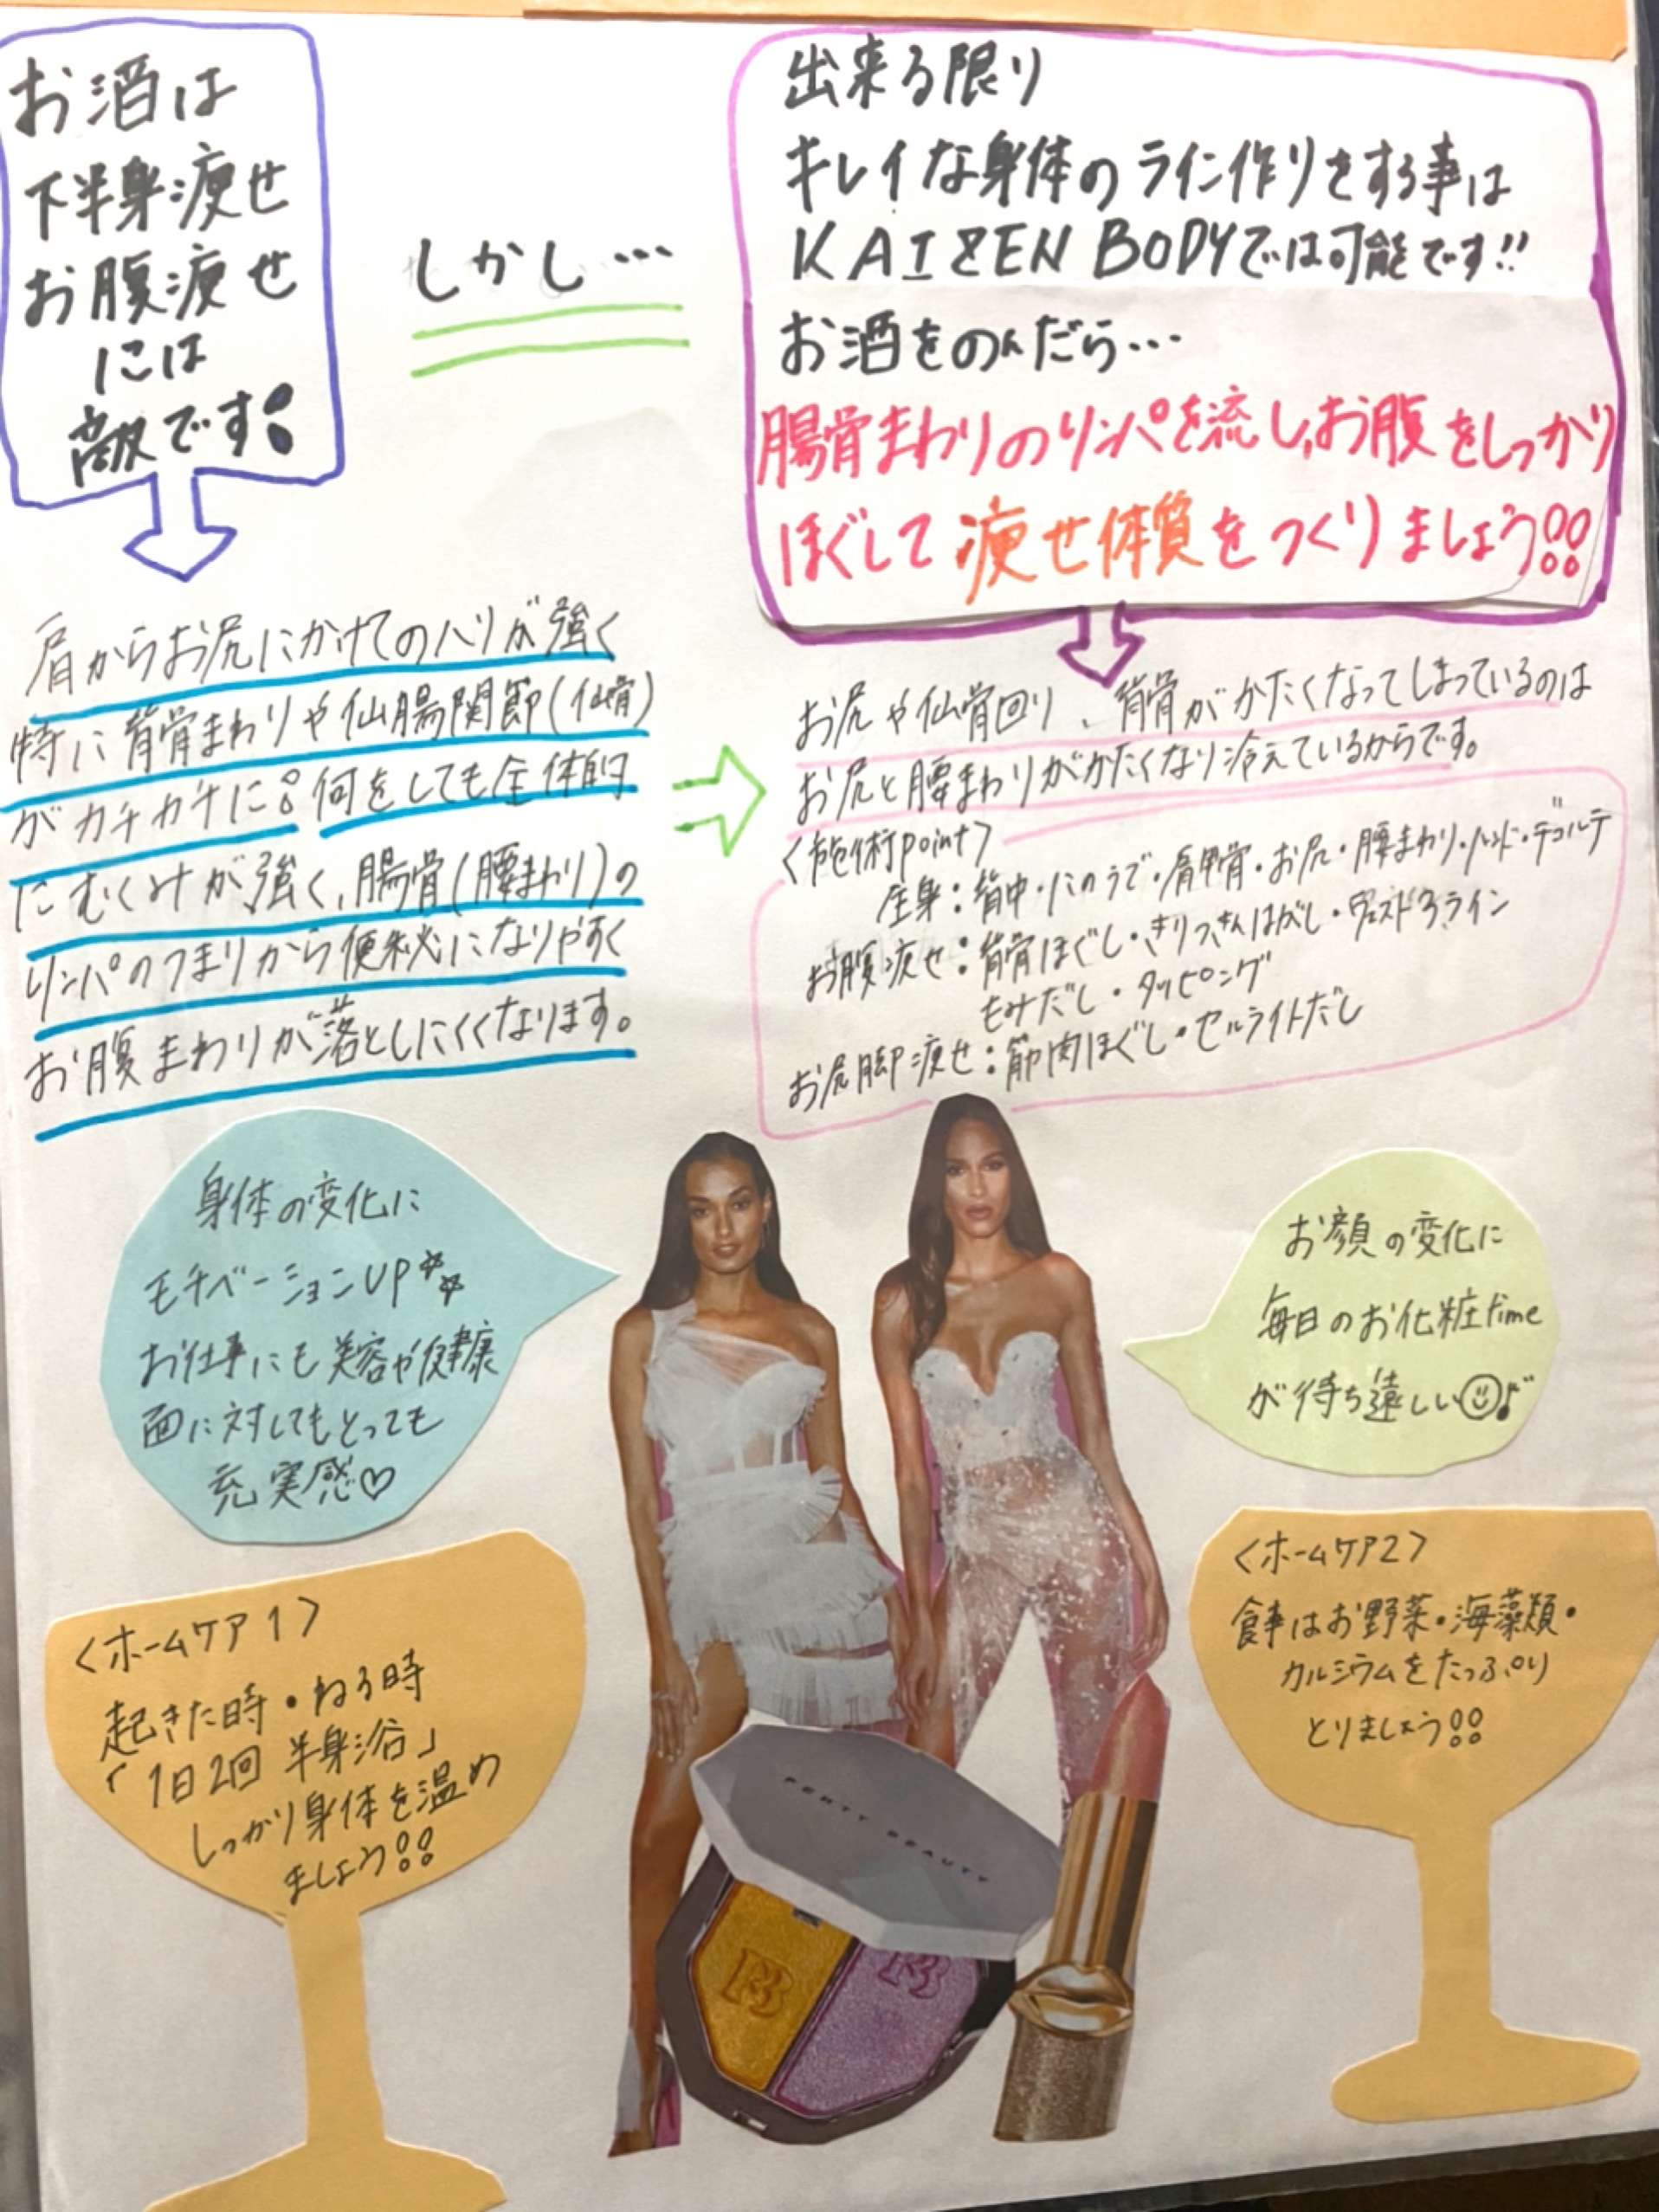 お酒は
下半身痩せ
お腹痩せ
には
敵です!
しかし…
出来る限り
キレイな身体のライン作りをする事は
KAIZEN BODYでは可能です!!
お酒をのんだら…
腸骨まわりのリンパを流し、お腹をしっかり
ほぐして痩せ体質をつくりましょう!!
肩からお尻にかけてのハリが強く
特に背骨まわりや仙腸関節(仙骨)
がカチカチに! 何をしても全体的
にむくみが強く、腸骨(腰まわり)の
リンパのつまりから便秘になりやすく
お腹まわりが落としにくくなります。
お尻や仙骨回り、背骨がかたくなってしまっているのは
お尻と腰まわりがかたくなり冷えているからです。
〈施術point〉
全身:背中・二のうで・肩甲骨・お尻・腰まわり・ハンド・デコルテ
お腹痩せ:背骨ほぐし・きりつきんはがし・ウエスト3ライン
もみだし・タッピング
お尻脚痩せ:筋肉ほぐし・セルライトだし
身体の変化に
モチベーションUP☆☆
お仕事にも美容や健康
面に対してもとっても
充実感♡
お顔の変化に
毎日のお化粧time
が待ち遠しい☺♪
〈ホームケア1〉
起きた時・ねる時
「1日2回 半身浴」
しっかり身体を温め
ましょう!!
〈ホームケア2〉
食事はお野菜・海藻類・
カルシウムをたっぷり
とりましょう!!
FENTY BEAUTY